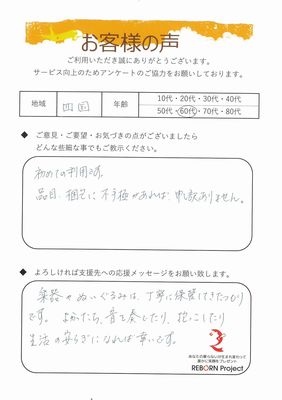 お客様の声
ご利用いただき誠にありがとうございます。
サービス向上のためアンケートのご協力をお願いしております。
地域 四国 年齢 10代・20代・30代・40代
50代・60代・70代・80代
◆ ご意見・ご要望・お気づきの点がございましたら
どんな些細な事でもご教示ください。
初めての利用です。
品目、梱包に不手極があれば、申訳ありません。
◆ よろしければ支援先への応援メッセージをお願い致します。
楽器やぬいぐるみは、丁寧に保管してきたつもり
です。よかったら、音を奏したり、抱っこしたり
生活の安らぎになれば幸いです。
あなたの要らないが生まれ変わって
誰かに笑顔をプレゼント
REBORN Project